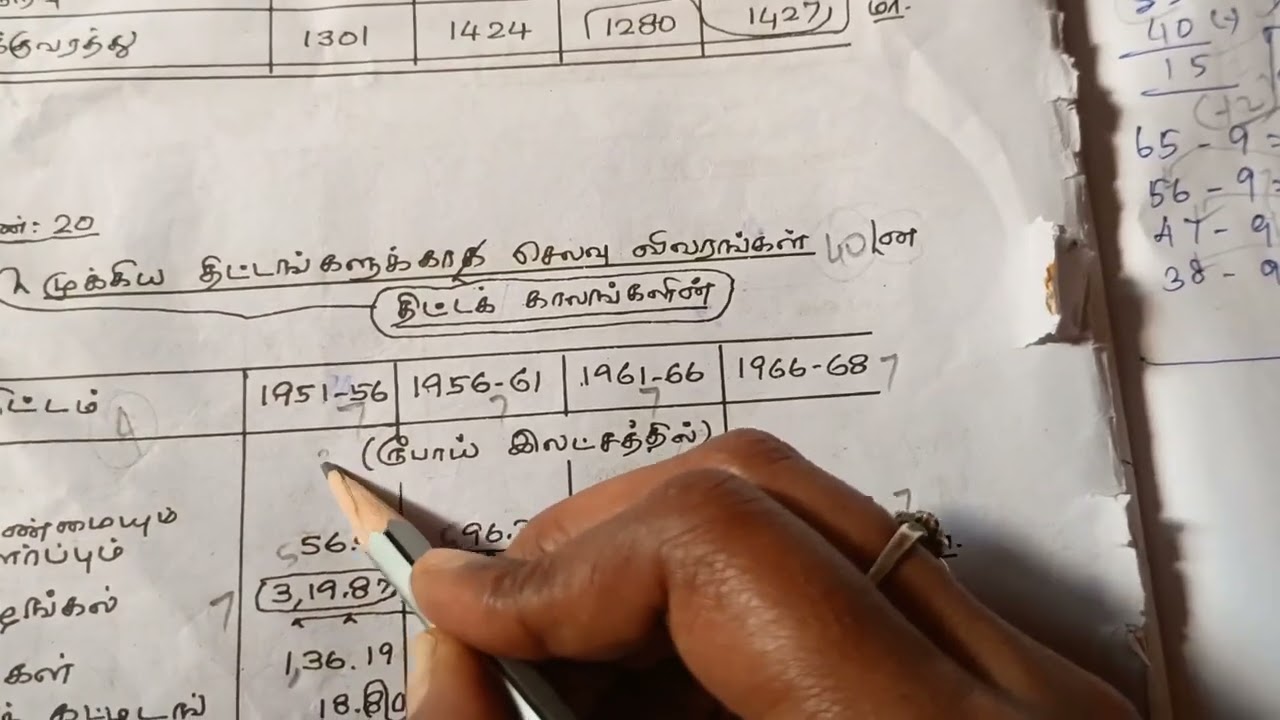 க்குவரத்து 1301 1424 1280 1427 மா.
ண்: 20
முக்கிய திட்டங்களுக்காக செலவு விவரங்கள் 40/ன
திட்டக் காலங்களின்
ிட்டம் 1951-56 1956-61 1961-66 1966-68 7
9 7 7 7
(ரூபாய் இலட்சத்தில்)
ண்மையும்
ளர்ப்பும் 56. 96.
7 3,19.87
கள் 1,36.19
கட்டிடங் 18.80
40 (-)
15
65 - 9 =
56 - 9 =
47 - 9
38 - 9